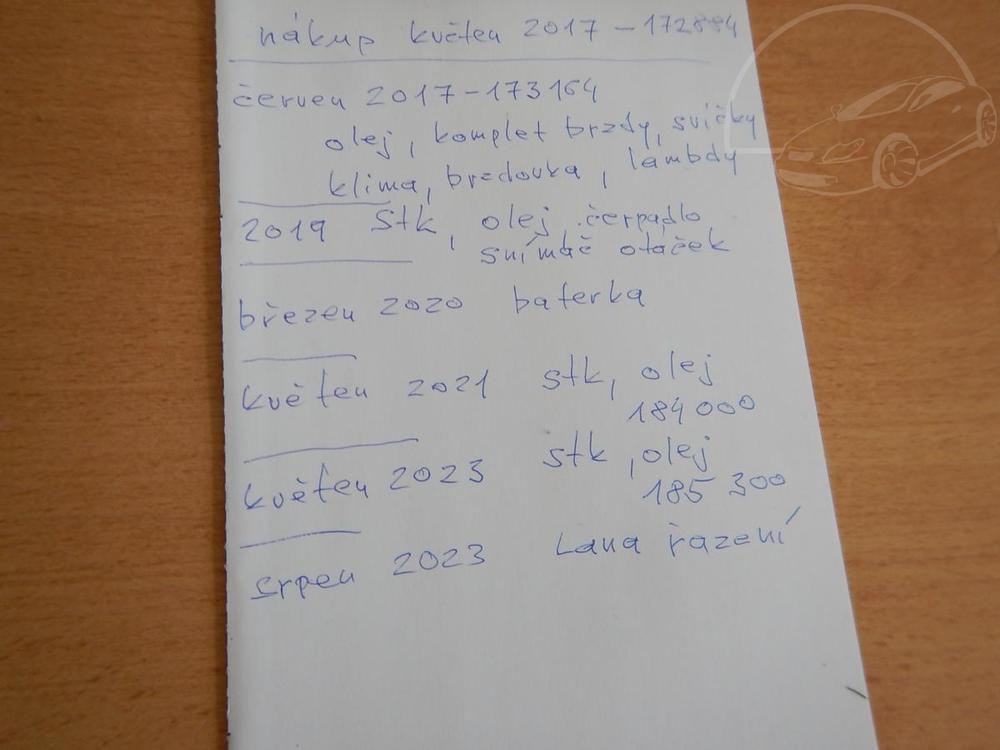 nákup květen 2017 - 172884
červen 2017 - 173164
olej, komplet brzdy, svíčky
klima, brzdovka, lambdy
2019 stk, olej čerpadlo
snímač otáček
březen 2020 baterka
květen 2021 stk, olej
184 000
květen 2023 stk, olej
185 300
srpen 2023 Lana řazení